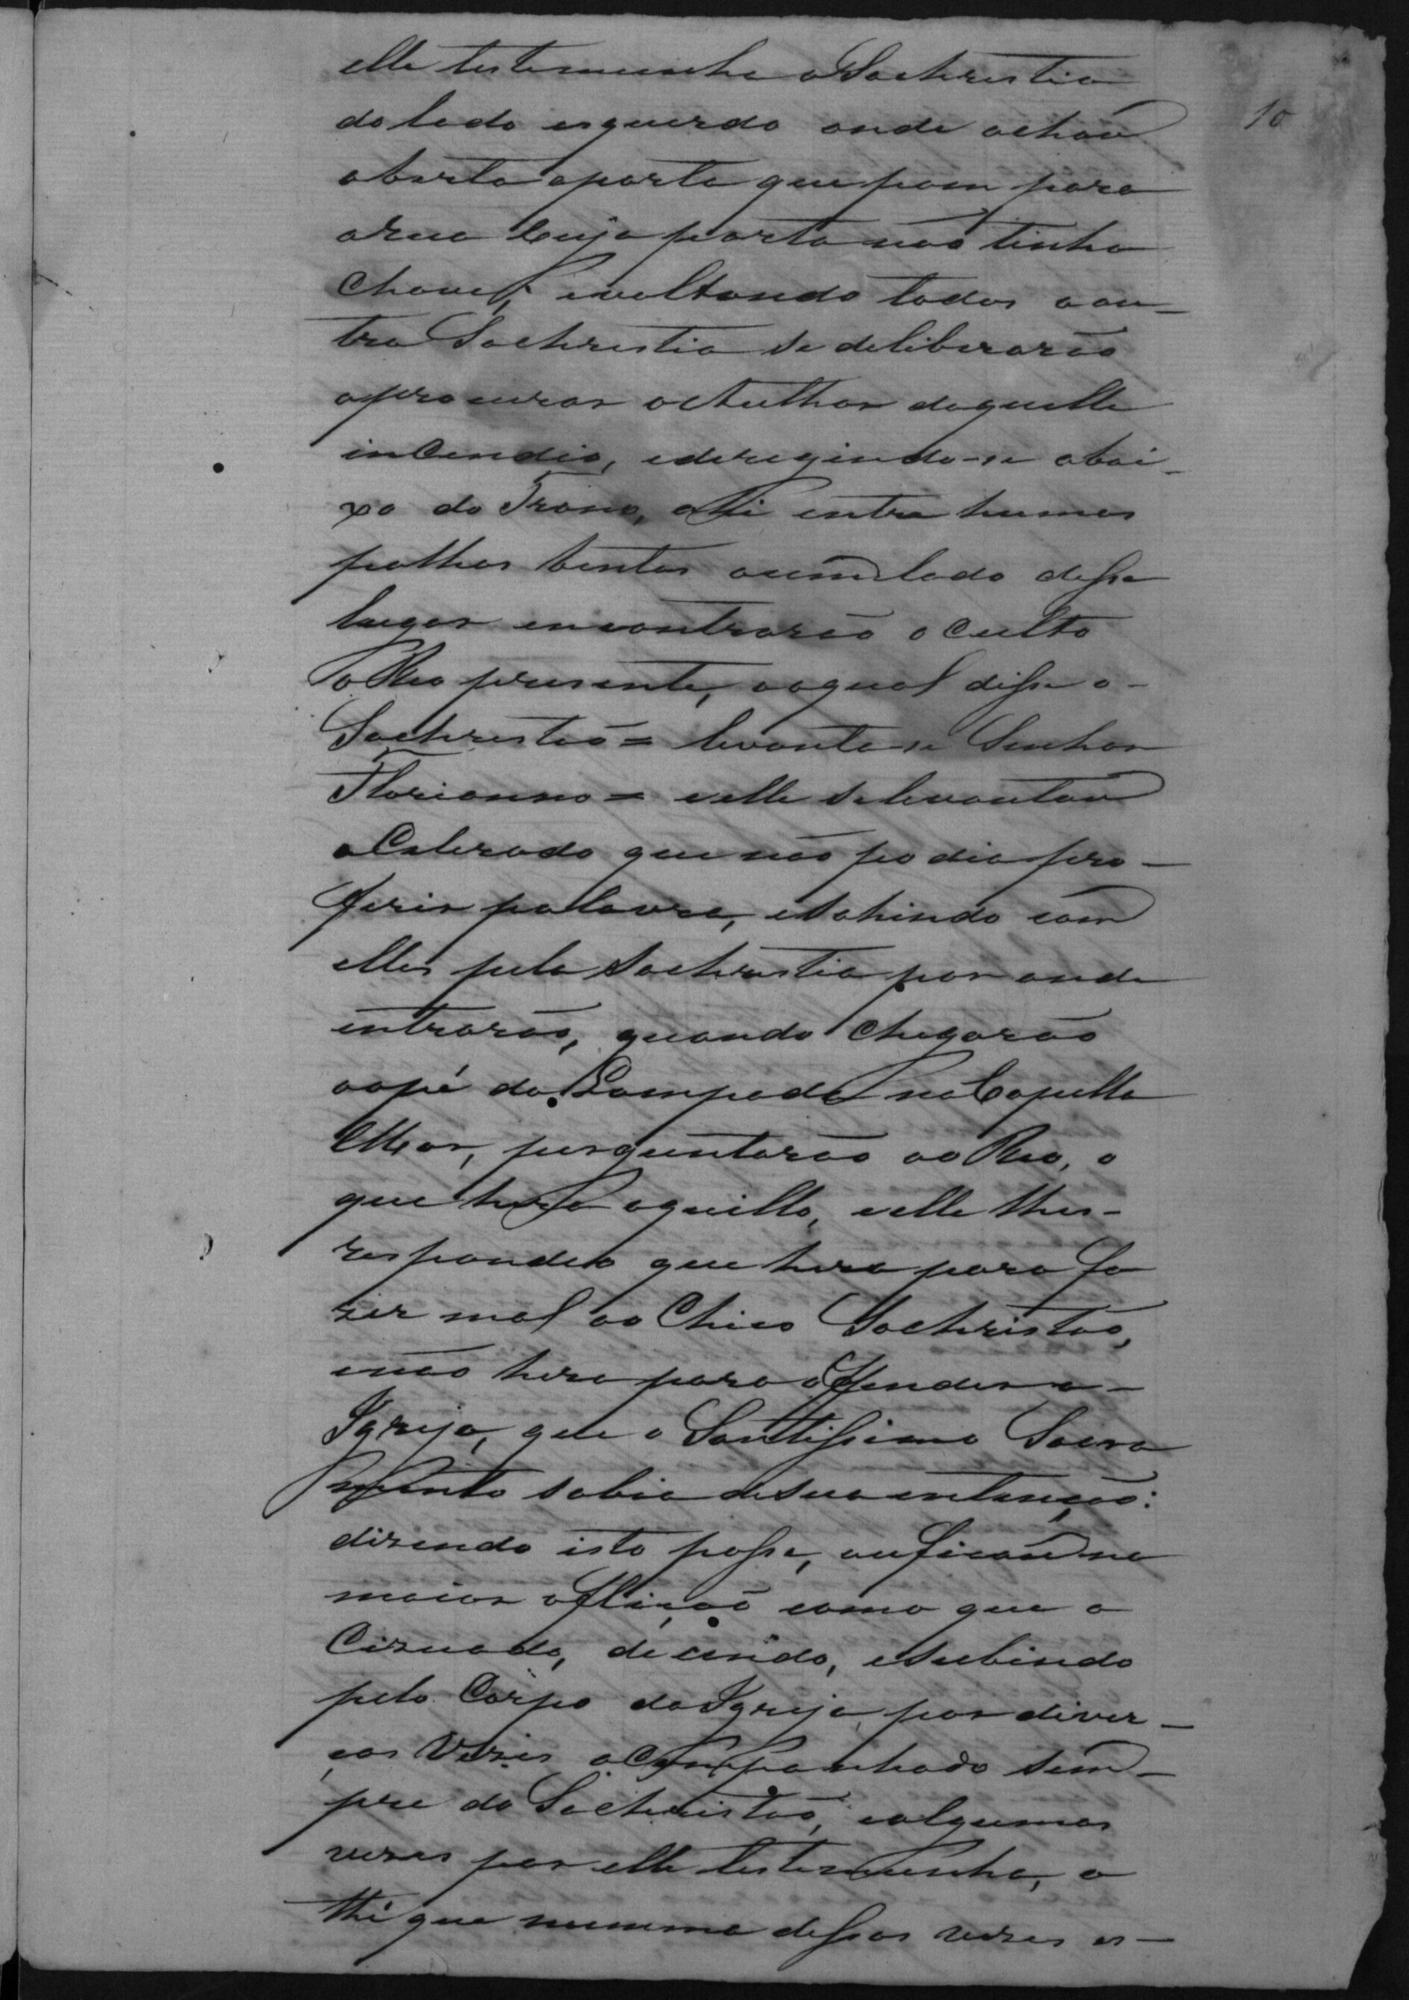 10
elle testemunha a Sachrestia
do lado esquerdo onde achou
aberta aporta que poem para
arua Cuja porta não tinha
Chave, evoltando todos aou-
tra Sachrestia se deliberarão
aprocurar oAuthor daquelle
inCendio, ederegindo-se abai-
xo do Trono, alli entre humas
palhas bentas aum lado desse
lugar encontrarão oCulto
oReo presente, aoqual disse o-
Sachrestão = levante-se Senhor
Florianno = eelle selevantou
aCelerado que não podia pro-
ferir palavra, esahindo com
elles pela Sachrestia por onde
entrarão, quando Chegarão
aopé da Lampada na Capella
Mor, perguntarão ao Reo, o
que hera aquillo, eelle lhes-
respondeo que hera para fa
zer mal ao Chico Sachristão,
enão hera para offender a-
Igreja, que o Santissimo Sacra
mento sabia desua entenção:
dizendo isto passe, ou ficou na
maior aflição como que a
Cizuado, decendo, esubindo
pelo Corpo da Igreja, por diver-
ças Vezes aCompanhado sem-
pre do Sachristão, ealgumas
vezes por elle testemunha, a
thé que numma dessas vezes es-